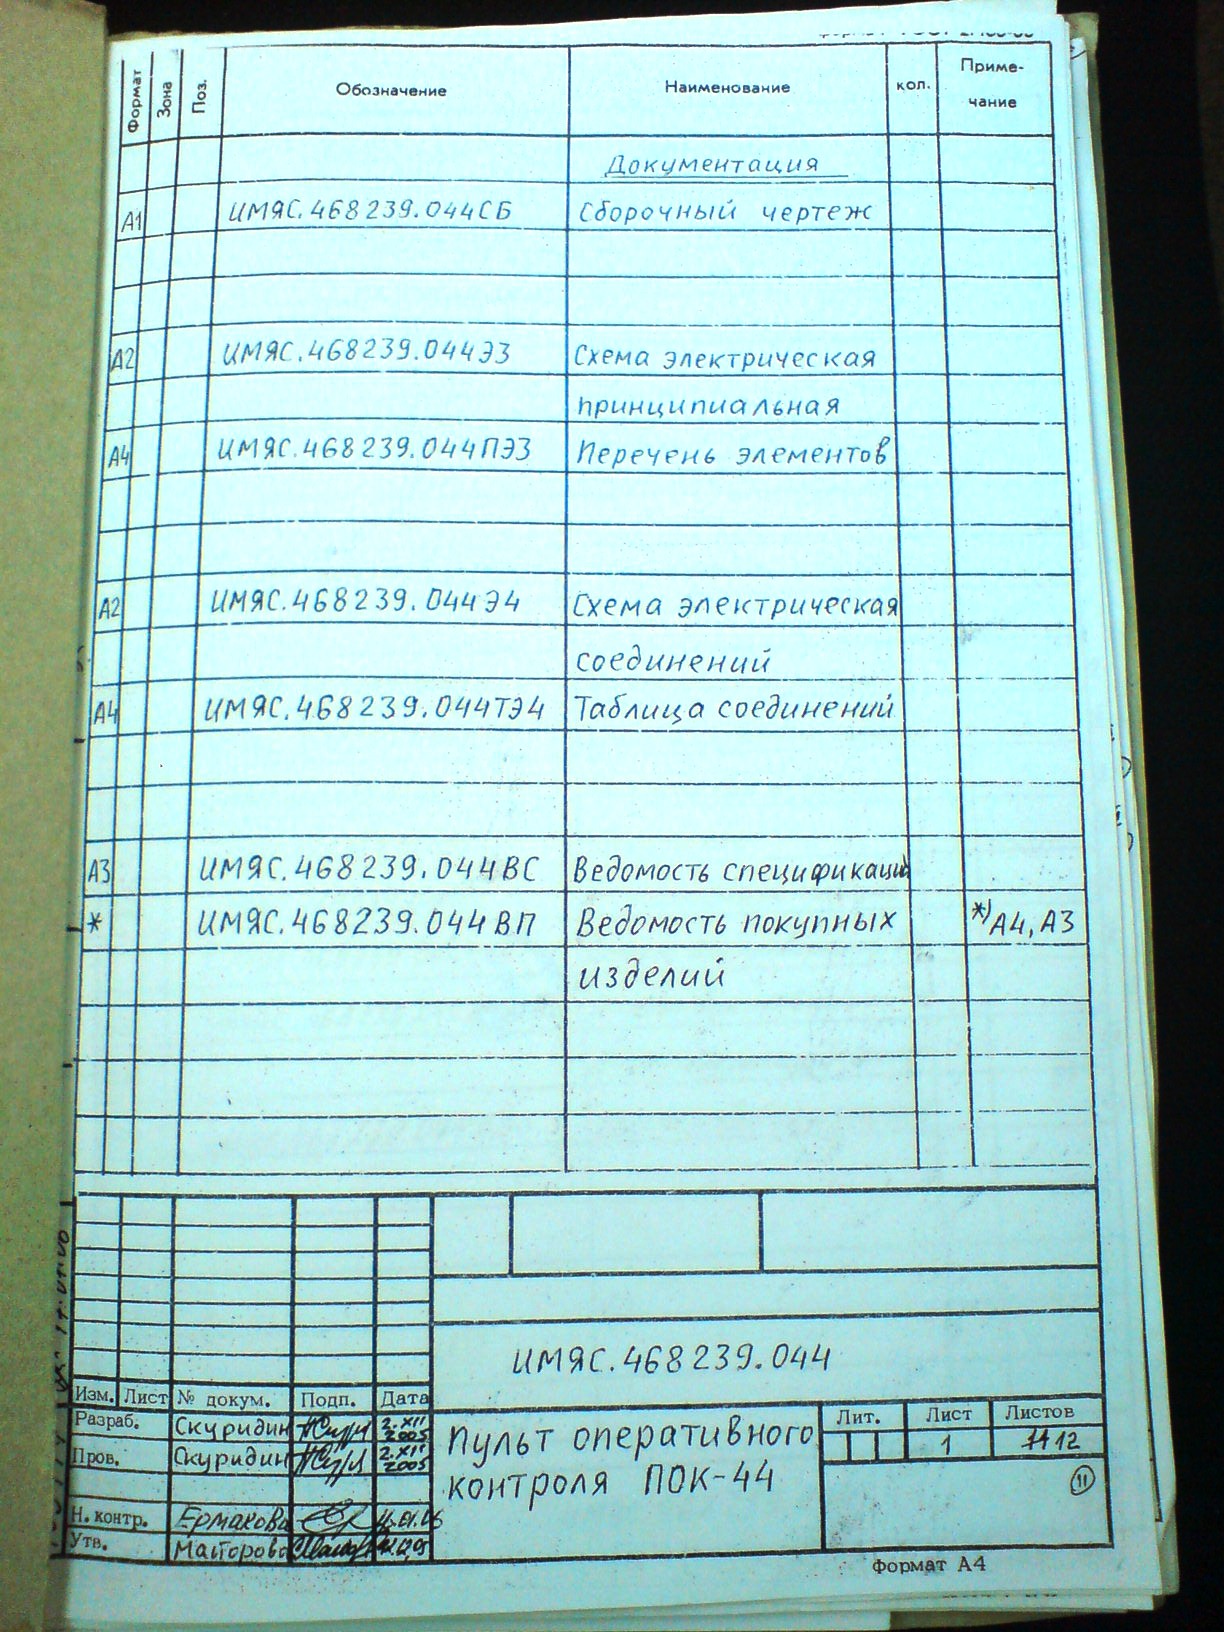 Формат Зона Поз. Обозначение Наименование кол. Приме-
чание
Документация
А1 ИМЯС.468239.044СБ Сборочный чертеж
А2 ИМЯС.468239.044Э3 Схема электрическая
принципиальная
А4 ИМЯС.468239.044ПЭ3 Перечень элементов
А2 ИМЯС.468239.044Э4 Схема электрическая
соединений
А4 ИМЯС.468239.044ТЭ4 Таблица соединений
А3 ИМЯС.468239.044ВС Ведомость спецификаций
* ИМЯС.468239.044ВП Ведомость покупных *)А4, А3
изделий
ИМЯС.468239.044
Изм. Лист № докум. Подп. Дата
Разраб. Скуридин 2.XII 2005
Пров. Скуридин 2.XII 2005
Н. контр. Ермакова
Утв.
Пульт оперативного
контроля ПОК-44
Лит. Лист Листов
1 12
11
Формат А4